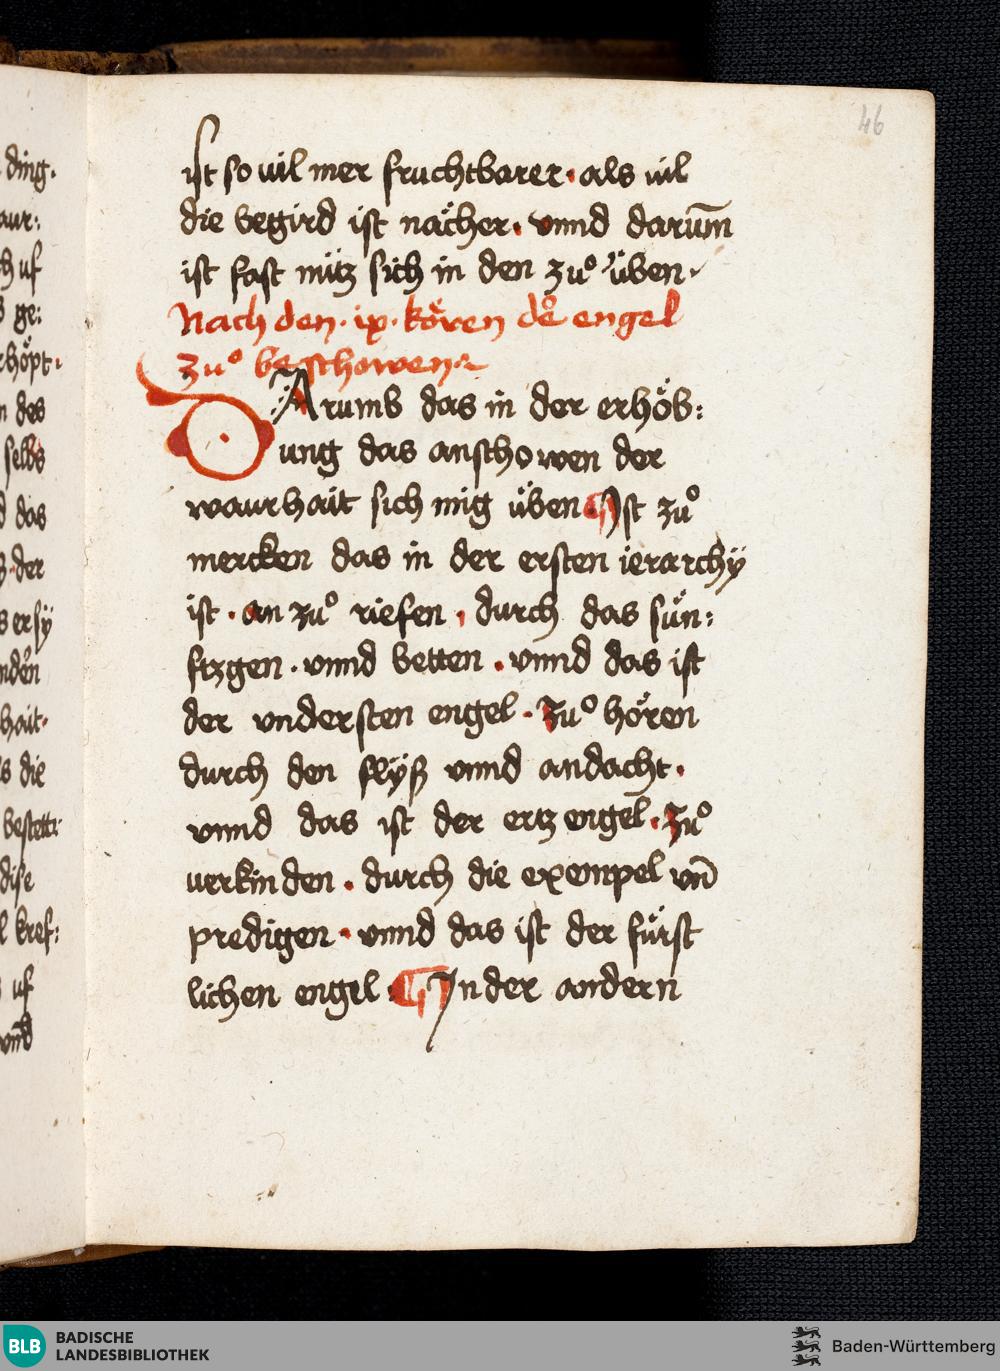 46
ding.
ch uf
s ge:
rhöpt.
n des
selbs
d das
der
s ersÿ
hait.
s die
dise
l kref:
uf
vnd
ist so uil mer fruchtbarer. als uil
die begird ist nächer. vnnd darum̄
ist fast nütz sich in den zuͦ üben.
Nach den. ix. kören deͤ engel
zuͦ beschowen.
DArumb das in der erhöb:
ung das anschowen der
waurhait sich mig üben. Ist zuͦ
mercken das in der ersten ierarchÿ
ist. an zuͦ riefen, durch das sün:
ftzgen. vnnd betten. vnnd das ist
der vndersten engel. Zuͦ hören
durch den flÿß vnnd andacht.
vnnd das ist der ertz engel. Zuͦ
uerkinden. durch die exempel vn̄
predigen. vnnd das ist der fürst
lichen engel. In der andern
BLB BADISCHE
LANDESBIBLIOTHEK
Baden-Württemberg